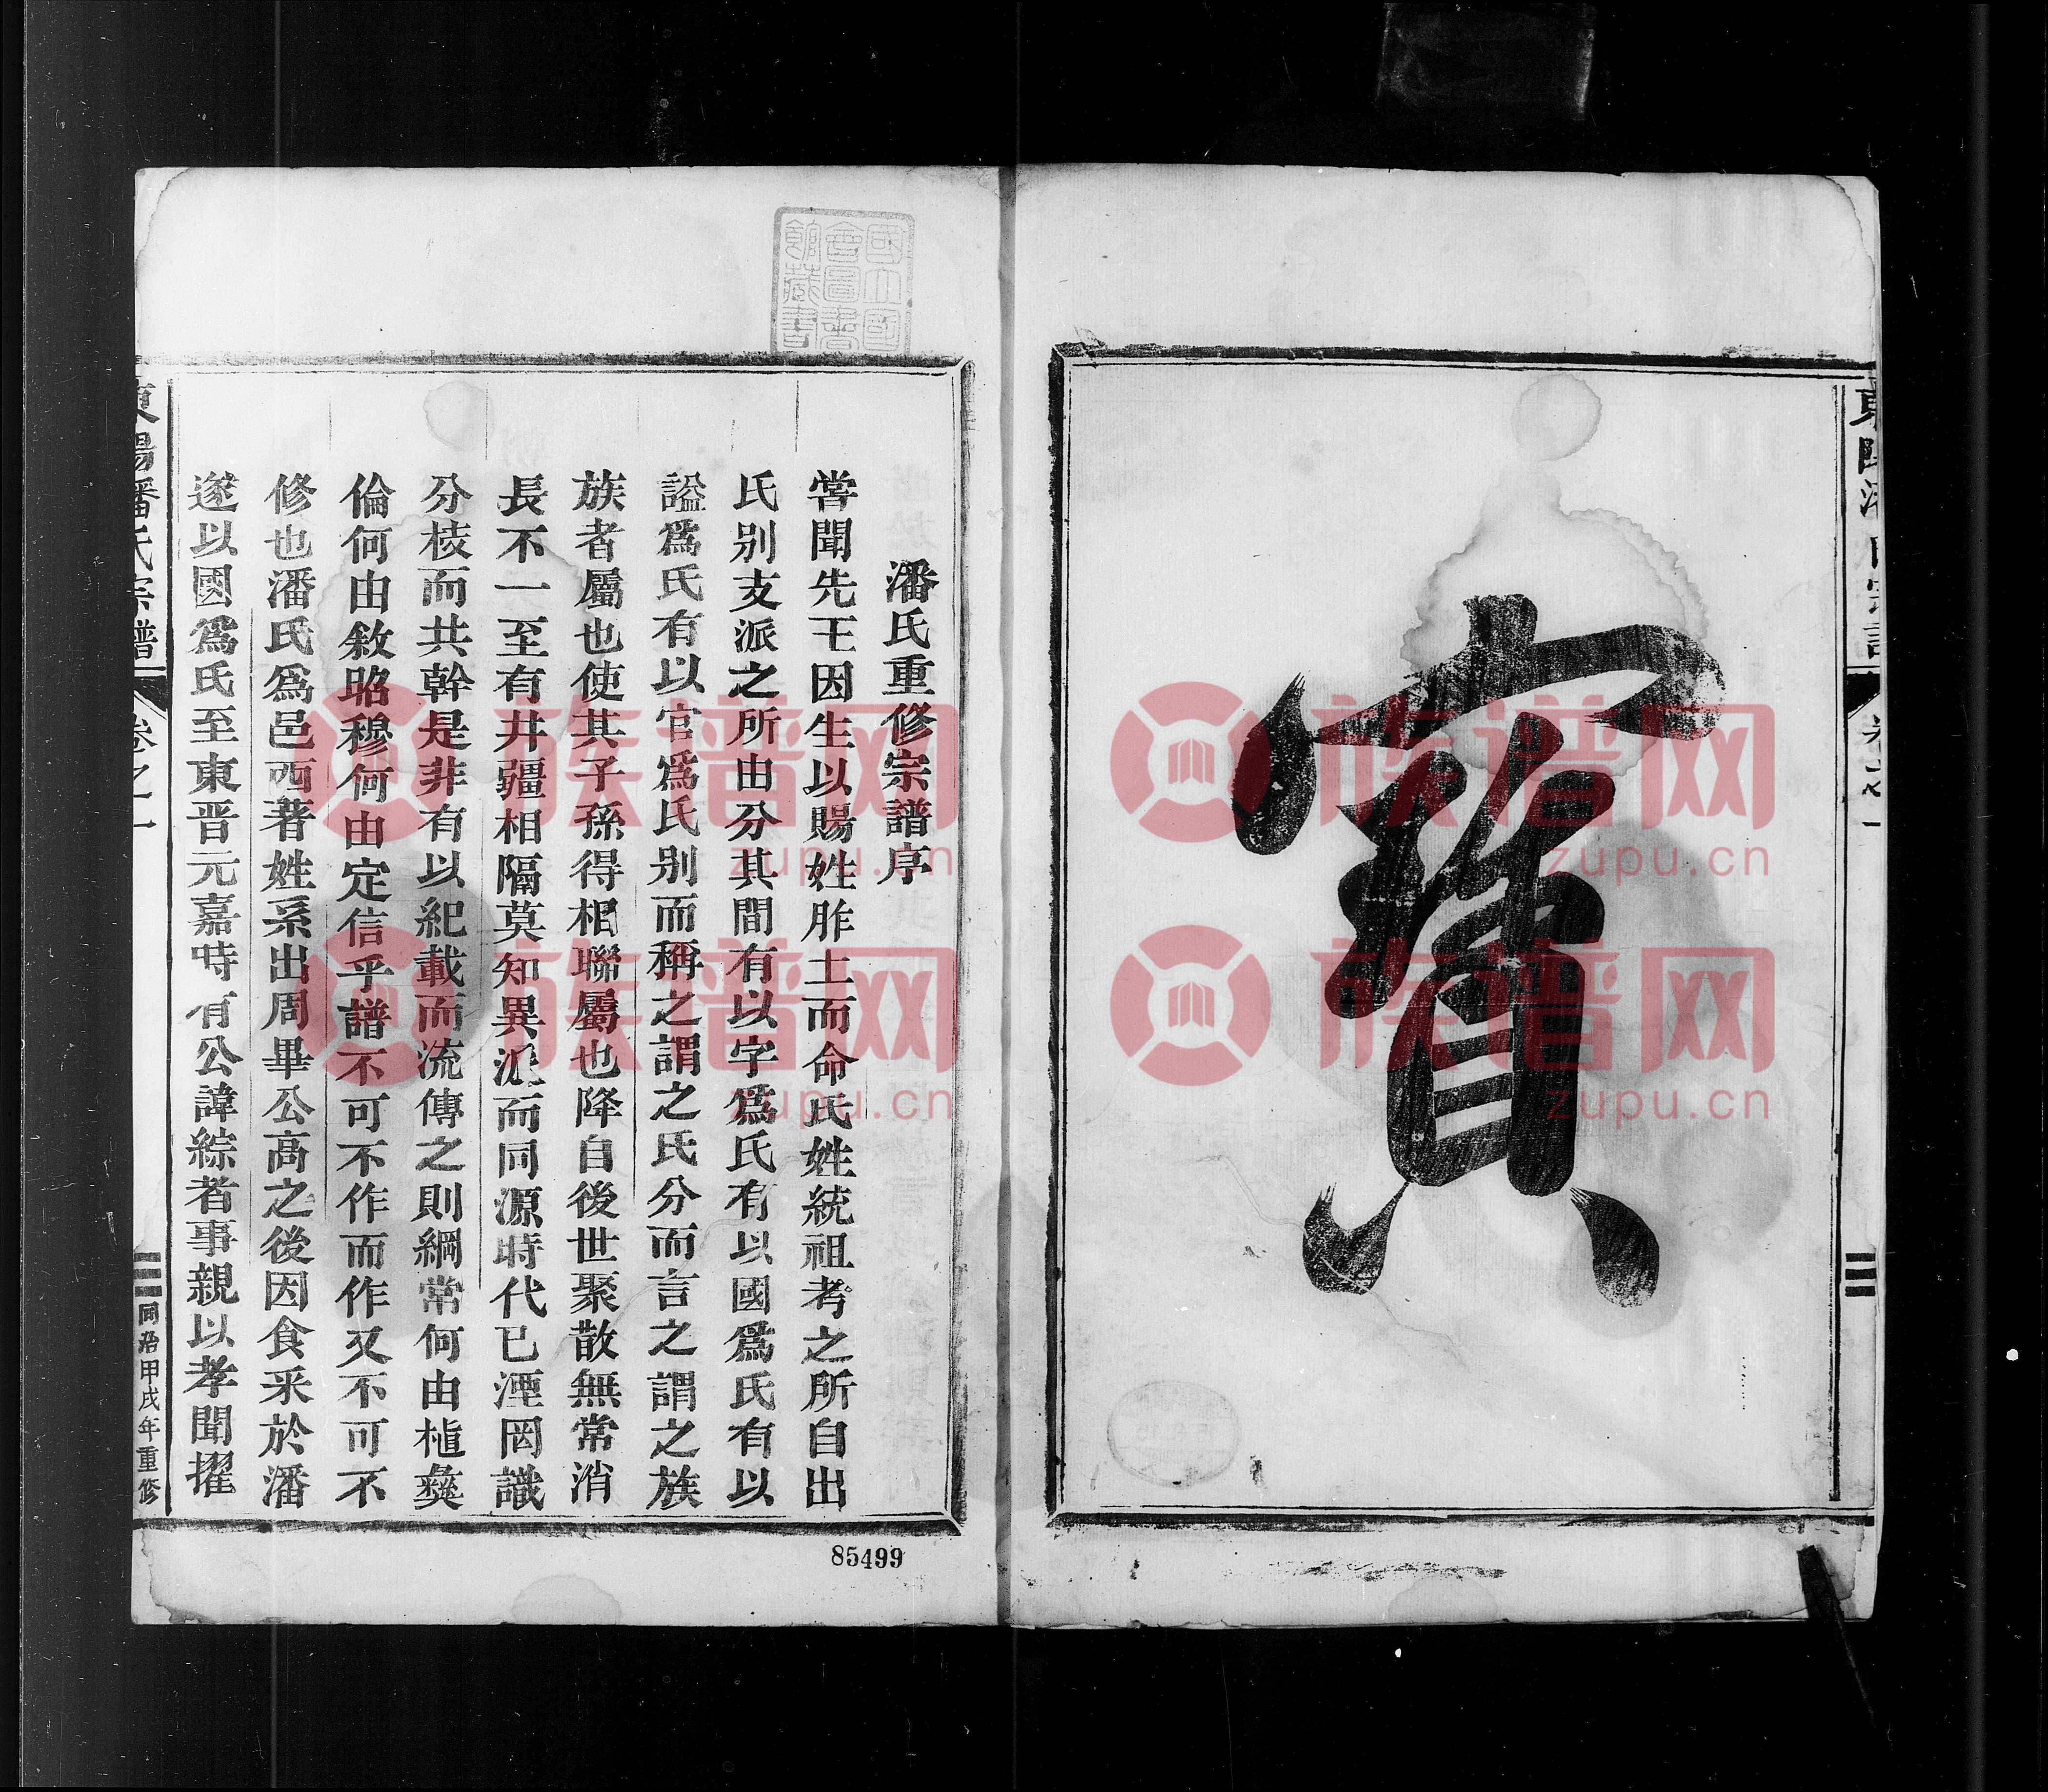 東陽潘氏宗譜 卷之一
寶
潘氏重修宗譜序
嘗聞先王因生以賜姓胙土而命氏姓統祖考之所自出
氏别支派之所由分其間有以字爲氏有以國爲氏有以
謚爲氏有以官爲氏别而稱之謂之氏分而言之謂之族
族者屬也使其子孫得相聯屬也降自後世聚散無常消
長不一至有井疆相隔莫知異派而同源時代已湮罔識
分枝而共幹是非有以紀載而流傳之則綱常何由植彝
倫何由敘昭穆何由定信乎譜不可不作而作又不可不
修也潘氏爲邑西著姓系出周畢公高之後因食采於潘
遂以國爲氏至東晋元嘉時有公諱綜者事親以孝聞擢
東陽潘氏宗譜 卷之一 同治甲戌年重修
國立國會圖書館藏書
85499
族谱网
zupu.cn
族谱网
zupu.cn
族谱网
zupu.cn
族谱网
zupu.cn